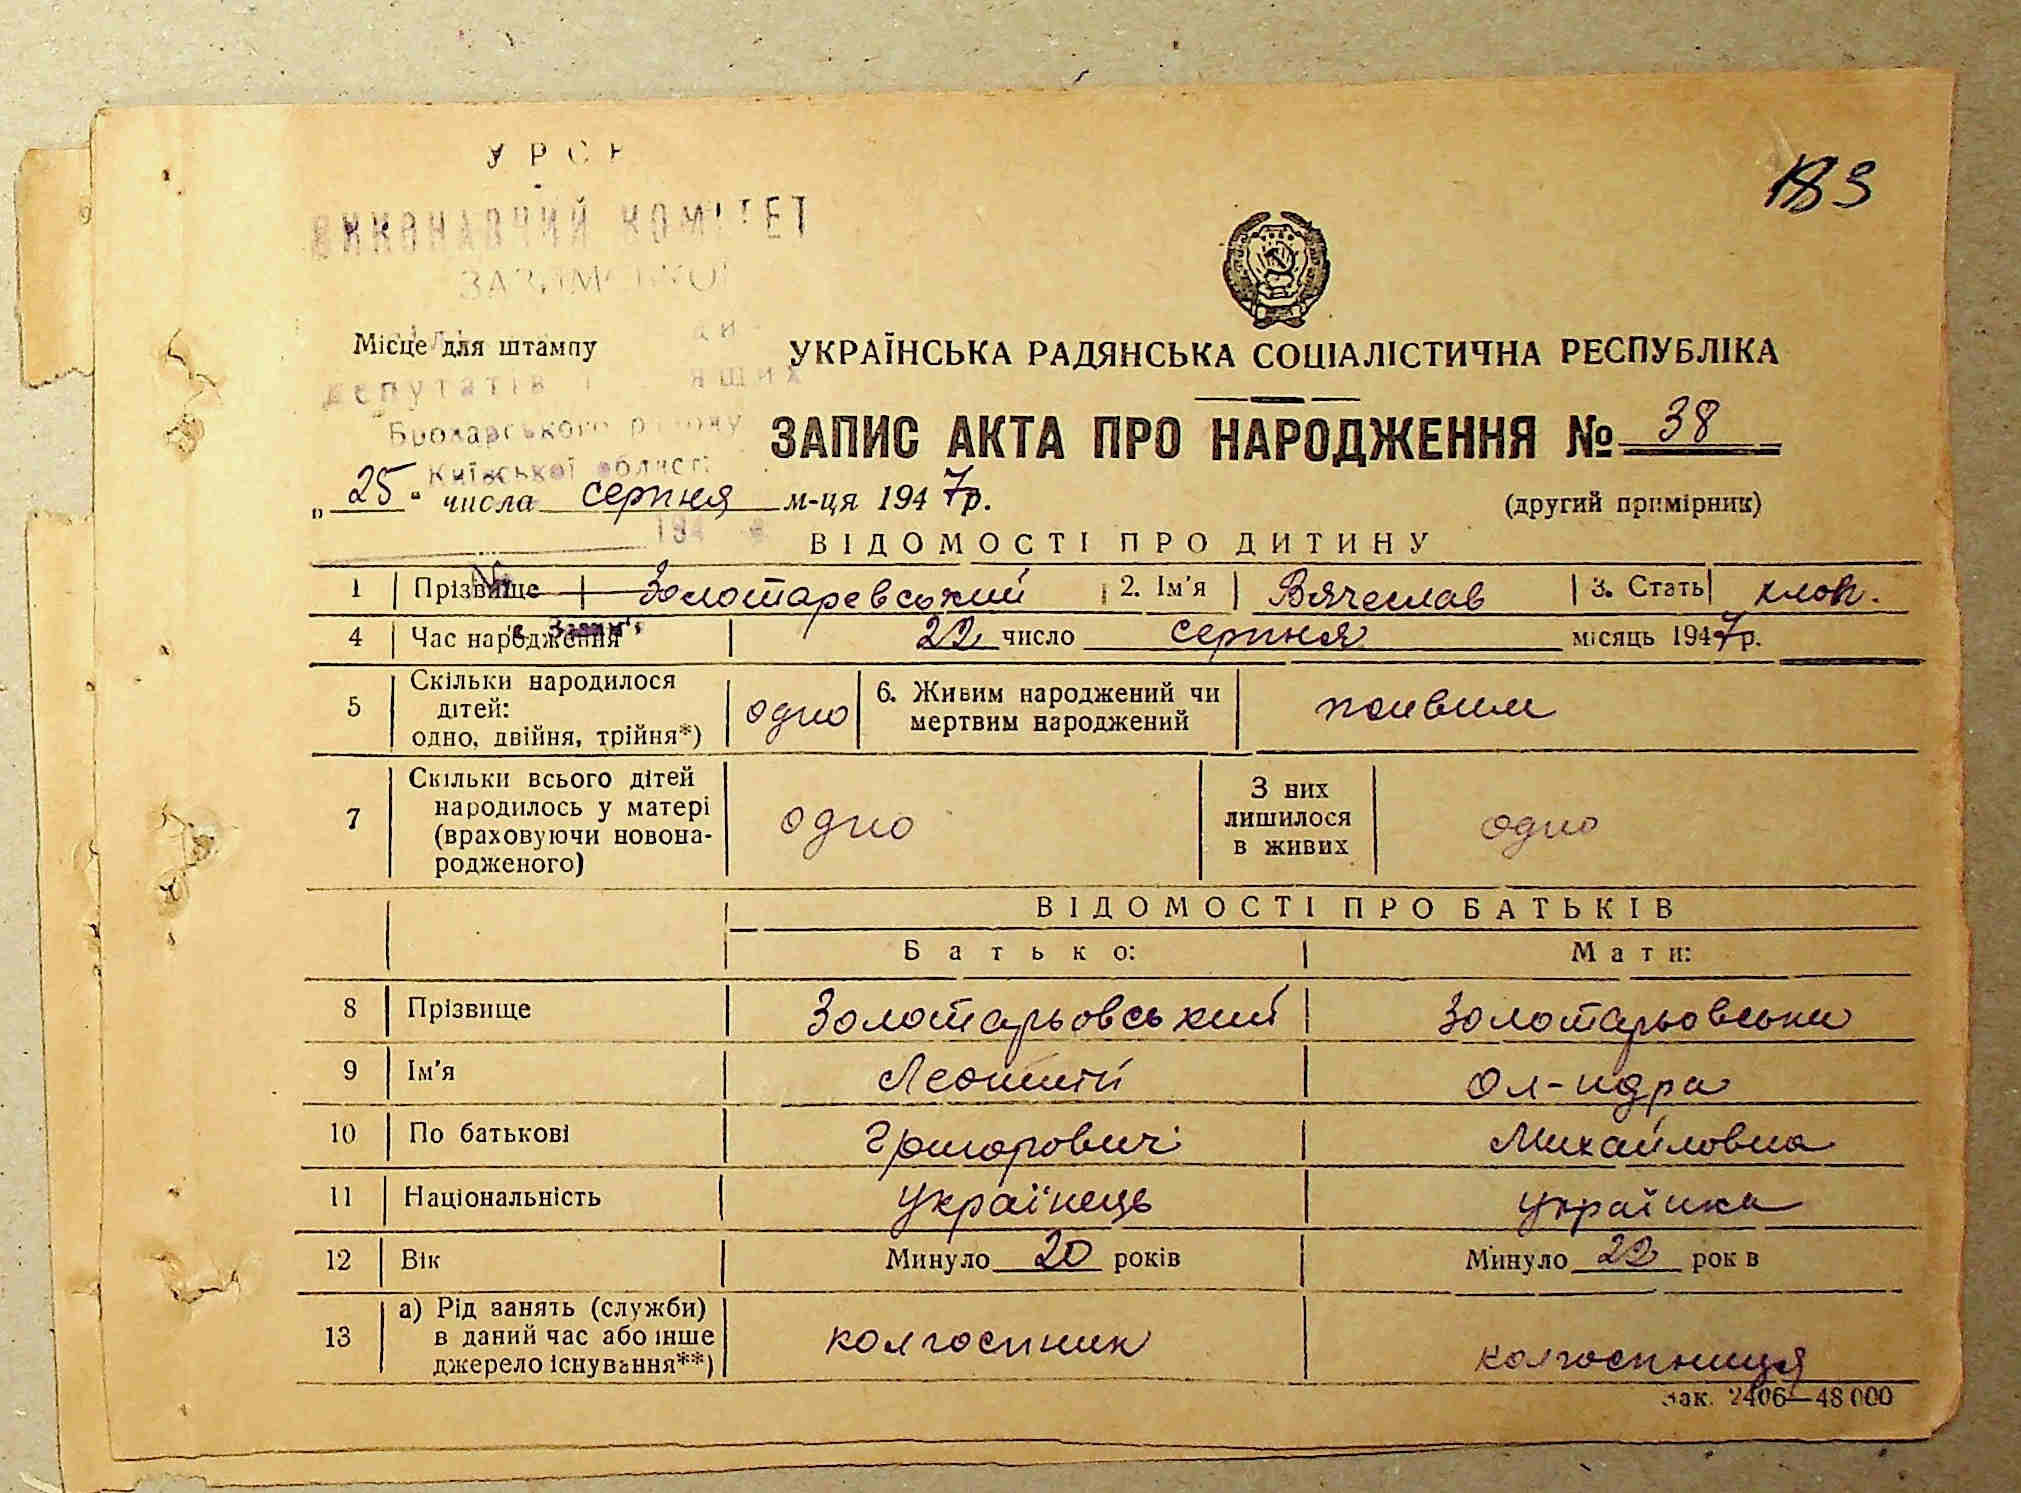 УРСР
183
ВИКОНАВЧИЙ КОМІТЕТ
ЗАЗИМСЬКОЇ
Місце для штампу
УКРАЇНСЬКА РАДЯНСЬКА СОЦІАЛІСТИЧНА РЕСПУБЛІКА
депутатів
Броварського району
ЗАПИС АКТА ПРО НАРОДЖЕННЯ № 38
Київської області
„25“ числа серпня м-ця 1947р.
(другий примірник)
194
ВІДОМОСТІ ПРО ДИТИНУ
1 Прізвище Золотаревський 2. Ім'я Вячеслав 3. Стать хлоп.
4 Час народження 22 число серпня місяць 1947р.
5 Скільки народилося дітей: одно, двійня, трійня*) одно 6. Живим народжений чи мертвим народжений живим
7 Скільки всього дітей народилось у матері (враховуючи новонародженого) одно З них лишилося в живих одно
ВІДОМОСТІ ПРО БАТЬКІВ
Батько: Мати:
8 Прізвище Золотарьовський Золотарьовська
9 Ім'я Леонтій Ол-ндра
10 По батькові Григорович Михайловна
11 Національність українець українка
12 Вік Минуло 20 років Минуло 22 рок в
13 а) Рід занять (служби) в даний час або інше джерело існування**) колгоспник колгоспниця
Зак. 2406—48 000